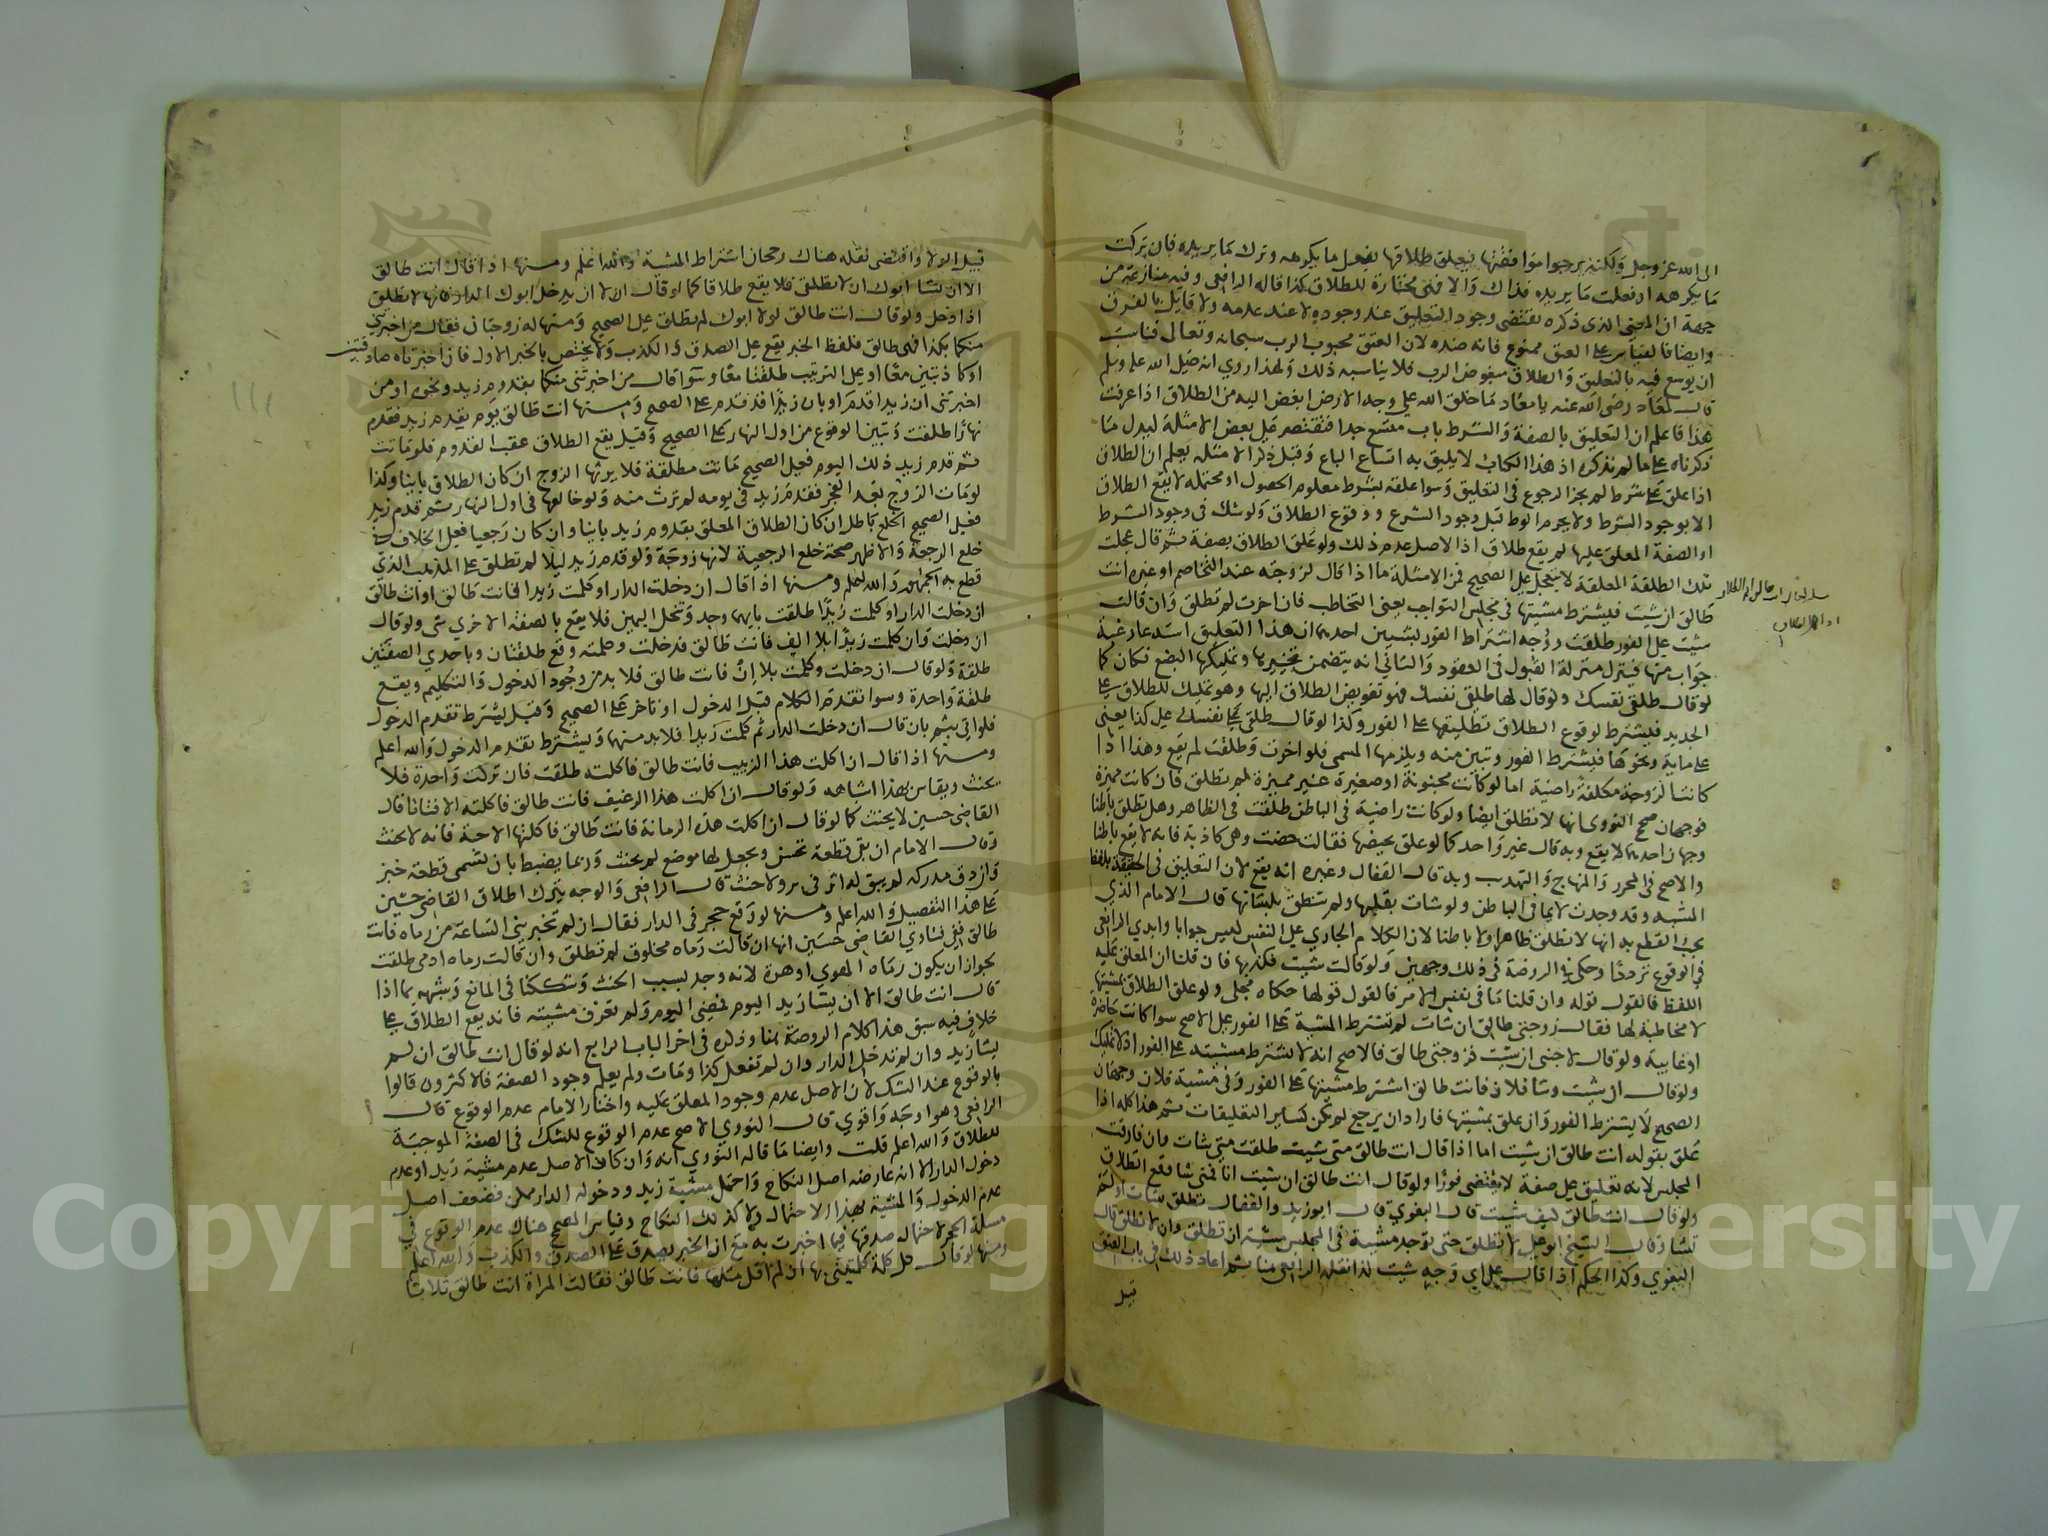 الى الله عز وجل ولكنه يرجوا موافقتها فيعلق طلاقها بفعل ما يكرهه وترك ما يريده فان تركت
ما يكرهه او فعلت ما يريده فذاك والا فهي مختارة للطلاق كذا قاله الرافعي وفيه منازعة من
جهة ان المعنى الذي ذكره يقتضي وجود التعليق عند وجوده لا عند عدمه ولا قايل بالفرق
وايضا فالقياس على العتق ممنوع فانه ضده لان العتق محبوب الرب سبحانه وتعالى فناسب
ان يوسع فيه بالتعليق والطلاق مبغوض الرب فلا يناسبه ذلك ولهذا روي انه صلى الله عليه وسلم
قال لمعاذ رضي الله عنه يا معاذ ما خلق الله على وجه الارض ابغض اليه من الطلاق اذا عرفت
هذا فاعلم ان التعليق بالصفة والشرط باب متسع جدا فنقتصر على بعض الامثلة ليدل ما
ذكرناه على ما لم نذكره اذ هذا الكتاب لا يليق به اتساع الباع وقبل ذكر الامثلة يعلم ان الطلاق
اذا علق على شرط لم يجز الرجوع في التعليق وسوا علقه بشرط معلوم الحصول او محتمله لا يقع الطلاق
الا بوجود الشرط ولا يحرم الوط قبل وجود الشرع ووقوع الطلاق ولو شك في وجود الشرط
او الصفة المعلق عليها لم يقع طلاق اذ الاصل عدم ذلك ولو علق الطلاق بصفة ثم قال عجلت
تلك الطلقة المعلقة لا يتعجل على الصحيح فمن الامثلة ما اذا قال لزوجته عند التخاصم او غيره انت
طالق ان شيت فيشترط مشيتها في مجلس التواجب يعني التخاطب فان اخرت لم تطلق وان قالت
شيت على الفور طلقت ووجه اشتراط الفور لشيين احدهما ان هذا التعليق استدعا رغبة
جواب منها فينزل منزلة القبول في العقود والثاني انه يتضمن تخييرها وتمليكها البضع فكان كما
لو قال طلقي نفسك ولو قال لها طلقي نفسك فهو تفويض الطلاق اليها وهو تمليك للطلاق على
الجديد فيشترط لوقوع الطلاق تطليقها على الفور وكذا لو قال طلقي نفسك على كذا يعني
على ماية ونحوها فيشترط الفور وتبين منه ويلزمها المسمى فلو اخرت وطلقت لم يقع وهذا اذا
كانت الزوجة مكلفة راضية اما لو كانت مجنونة او صغيرة غير مميزة لم تطلق فان كانت مميزة
فوجهان صحح النووي انها لا تطلق ايضا ولو كانت راضية في الباطن طلقت في الظاهر وهل تطلق باطنا
وجهان احدهما لا يقع وبه قال غير واحد كما لو علق بحيضها فقالت حضت وهي كاذبة فانه لا يقع باطنا
والاصح في المحرر والمنهاج والتهذيب وبه قال القفال وغيره انه يقع لان التعليق في الحقيقة بلفظ
المشية وقد وجدت لا بما في الباطن ولو شات بقلبها ولم تنطق بلسانها قال الامام الذي
يجب القطع به انها لا تطلق ظاهرا ولا باطنا لان الكلام الجاري على النفس ليس جوابا وابدي الرافعي
في الوقوع ترددا وحكى في الروضة في ذلك وجهين ولو قالت شيت فكذبها فان قلنا ان المعلق عليه
اللفظ فالقول قوله وان قلنا ما في نفس الامر فالقول قولها حكاه مجلي ولو علق الطلاق بمشيتها
لا مخاطبة لها فقال زوجتي طالق ان شات لم تشترط المشية على الفور على الاصح سوا كانت حاضرة
او غايبة ولو قال لاجنبي ان شيت فزوجتي طالق فالاصح انه لا يشترط مشيته على الفور اذ لا تمليك
ولو قال ان شيت وشا فلان فانت طالق اشترط مشيتها على الفور وفي مشية فلان وجهان
الصحيح لا يشترط الفور وان علق بمشيتها فاراد ان يرجع لم يمكن كساير التعليقات ثم هذا كله اذا
علق بقوله انت طالق ان شيت اما اذا قال انت طالق متى شيت طلقت متى شات وان فارقت
المجلس لانه تعليق على صفة لا يقتضي فورا ولو قال انت طالق ان شيت انا فمتى شا يقع الطلاق
ولو قال انت طالق كيف شيت قال البغوي قال ابو زيد والقفال تطلق شات او لم
تشا وقال الشيخ ابو علي لا تطلق حتى توجد مشية في المجلس مشية ان تطلق وان لا تطلق قال
البغوي وكذا الحكم اذا قال على اي وجه شيت كذا نقله الرافعي هنا ثم اعاد ذلك في باب العتق
قبيل
قبيل الولا واقتضى نقله هناك رجحان اشتراط المشية والله اعلم ومنها اذا قال انت طالق
الا ان يشا ابوك ان لا تطلقي فلا يقع طلاقا كما لو قال الا ان يدخل ابوك الدار فانها لا تطلق
اذا دخل ولو قال انت طالق لولا ابوك لم تطلق على الصحيح ومنها له زوجتان فقال من اخبرتني
منكما بكذا فهي طالق فلفظ الخبر يقع على الصدق والكذب ولا يختص بالخبر الاول فان اخبرتاه صادقتين
او كاذبتين معا او على الترتيب طلقتا معا وسوا قال من اخبرتني منكما بقدوم زيد ونحوه او من
اخبرتني ان زيدا قدم او بان زيدا قد قدم على الصحيح ومنها انت طالق يوم يقدم زيد فقدم
نهارا طلقت وتبين الوقوع من اول النهار على الصحيح وقيل يقع الطلاق عقب القدوم فلو ماتت
ثم قدم زيد ذلك اليوم فعلى الصحيح ماتت مطلقة فلا يرثها الزوج ان كان الطلاق باينا وكذا
لو مات الزوج بعد الفجر فقدم زيد في يومه لم ترث منه ولو خالعها في اول النهار ثم قدم زيد
فعلى الصحيح الخلع باطل ان كان الطلاق المعلق بقدوم زيد باينا وان كان رجعيا فعلى الخلاف في
خلع الرجعة والاظهر صحة خلع الرجعية لانها زوجة ولو قدم زيد ليلا لم تطلق على المذهب الذي
قطع به الجمهور والله اعلم ومنها اذا قال ان دخلت الدار او كلمت زيدا فانت طالق او انت طالق
ان دخلت الدار او كلمت زيدا طلقت بايهما وجد وتنحل اليمين فلا يقع بالصفة الاخرى شي ولو قال
ان دخلت وان كلمت زيدا بلا الف فانت طالق فدخلت وكلمته وقع طلقتان وباحدي الصفتين
طلقة ولو قال ان دخلت وكلمت بلا ان فانت طالق فلا بد من وجود الدخول والتكليم ويقع
طلقة واحدة وسوا تقدم الكلام قبل الدخول او تاخر على الصحيح وقيل يشترط تقدم الدخول
فلو اتى بثم بان قال ان دخلت الدار ثم كلمت زيدا فلا بد منهما ويشترط تقدم الدخول والله اعلم
ومنها اذا قال ان اكلت هذا الزبيب فانت طالق فاكلته طلقت فان تركت واحدة فلا
يحنث ويقاس بهذا اشباهه ولو قال ان اكلت هذا الرغيف فانت طالق فاكلته الا فتاتا قال
القاضي حسين لا يحنث كما لو قال ان اكلت هذه الرمانة فانت طالق فاكلتها الا حبة فانه لا يحنث
وقال الامام ان بقي قطعة تحس ويجعل لها موضع لم يحنث وربما يضبط بان تسمى قطعة خبز
وان دق مدركه لم يبق له اثر في بر ولا حنث قال الرافعي والوجه تنزل اطلاق القاضي حسين
على هذا التفصيل والله اعلم ومنها لو وقع حجر في الدار فقال ان لم تخبريني الساعة من رماه فانت
طالق ففي فتاوي القاضي حسين انها ان قالت رماه مخلوق لم تطلق وان قالت رماه ادمي طلقت
لجواز ان يكون رماه الهوي او هرة لانه وجد سبب الحنث وشككنا في المانع وشبهه بما اذا
قال انت طالق الا ان يشا زيد اليوم فمضى اليوم ولم تعرف مشيته فانه يقع الطلاق على
خلاف فيه سبق هذا كلام الروضة هنا وذكره في اخر الباب الرابع انه لو قال انت طالق ان لم
يشا زيد وان لم تدخل الدار وان لم تفعل كذا ومات ولم يعلم وجود الصفة فالاكثرون قالوا
بالوقوع عند الشك لان الاصل عدم وجود المعلق عليه واختار الامام عدم الوقوع قال
الرافعي وهو اوجه واقوي قال النووي الاصح عدم الوقوع للشك في الصفة الموجبة
للطلاق والله اعلم قلت وايضا ما قاله النووي انه وان كان الاصل عدم مشية زيد او عدم
دخول الدار الا انه عارضه اصل النكاح واحتمال مشية زيد ودخوله الدار ممكن فضعف اصل
عدم الدخول والمشية بهذا الاحتمال ولا كذلك النكاح وقياس المصحح هناك عدم الوقوع في
مسلة الحجر لاحتمال صدقها فيما اخبرت به مع ان الخبر يصدق على الصدق والكذب والله اعلم
ومنها لو قال كل كلمة كلمتيني بها ان لم اقل مثلها فانت طالق فقالت المراة انت طالق ثلاثا